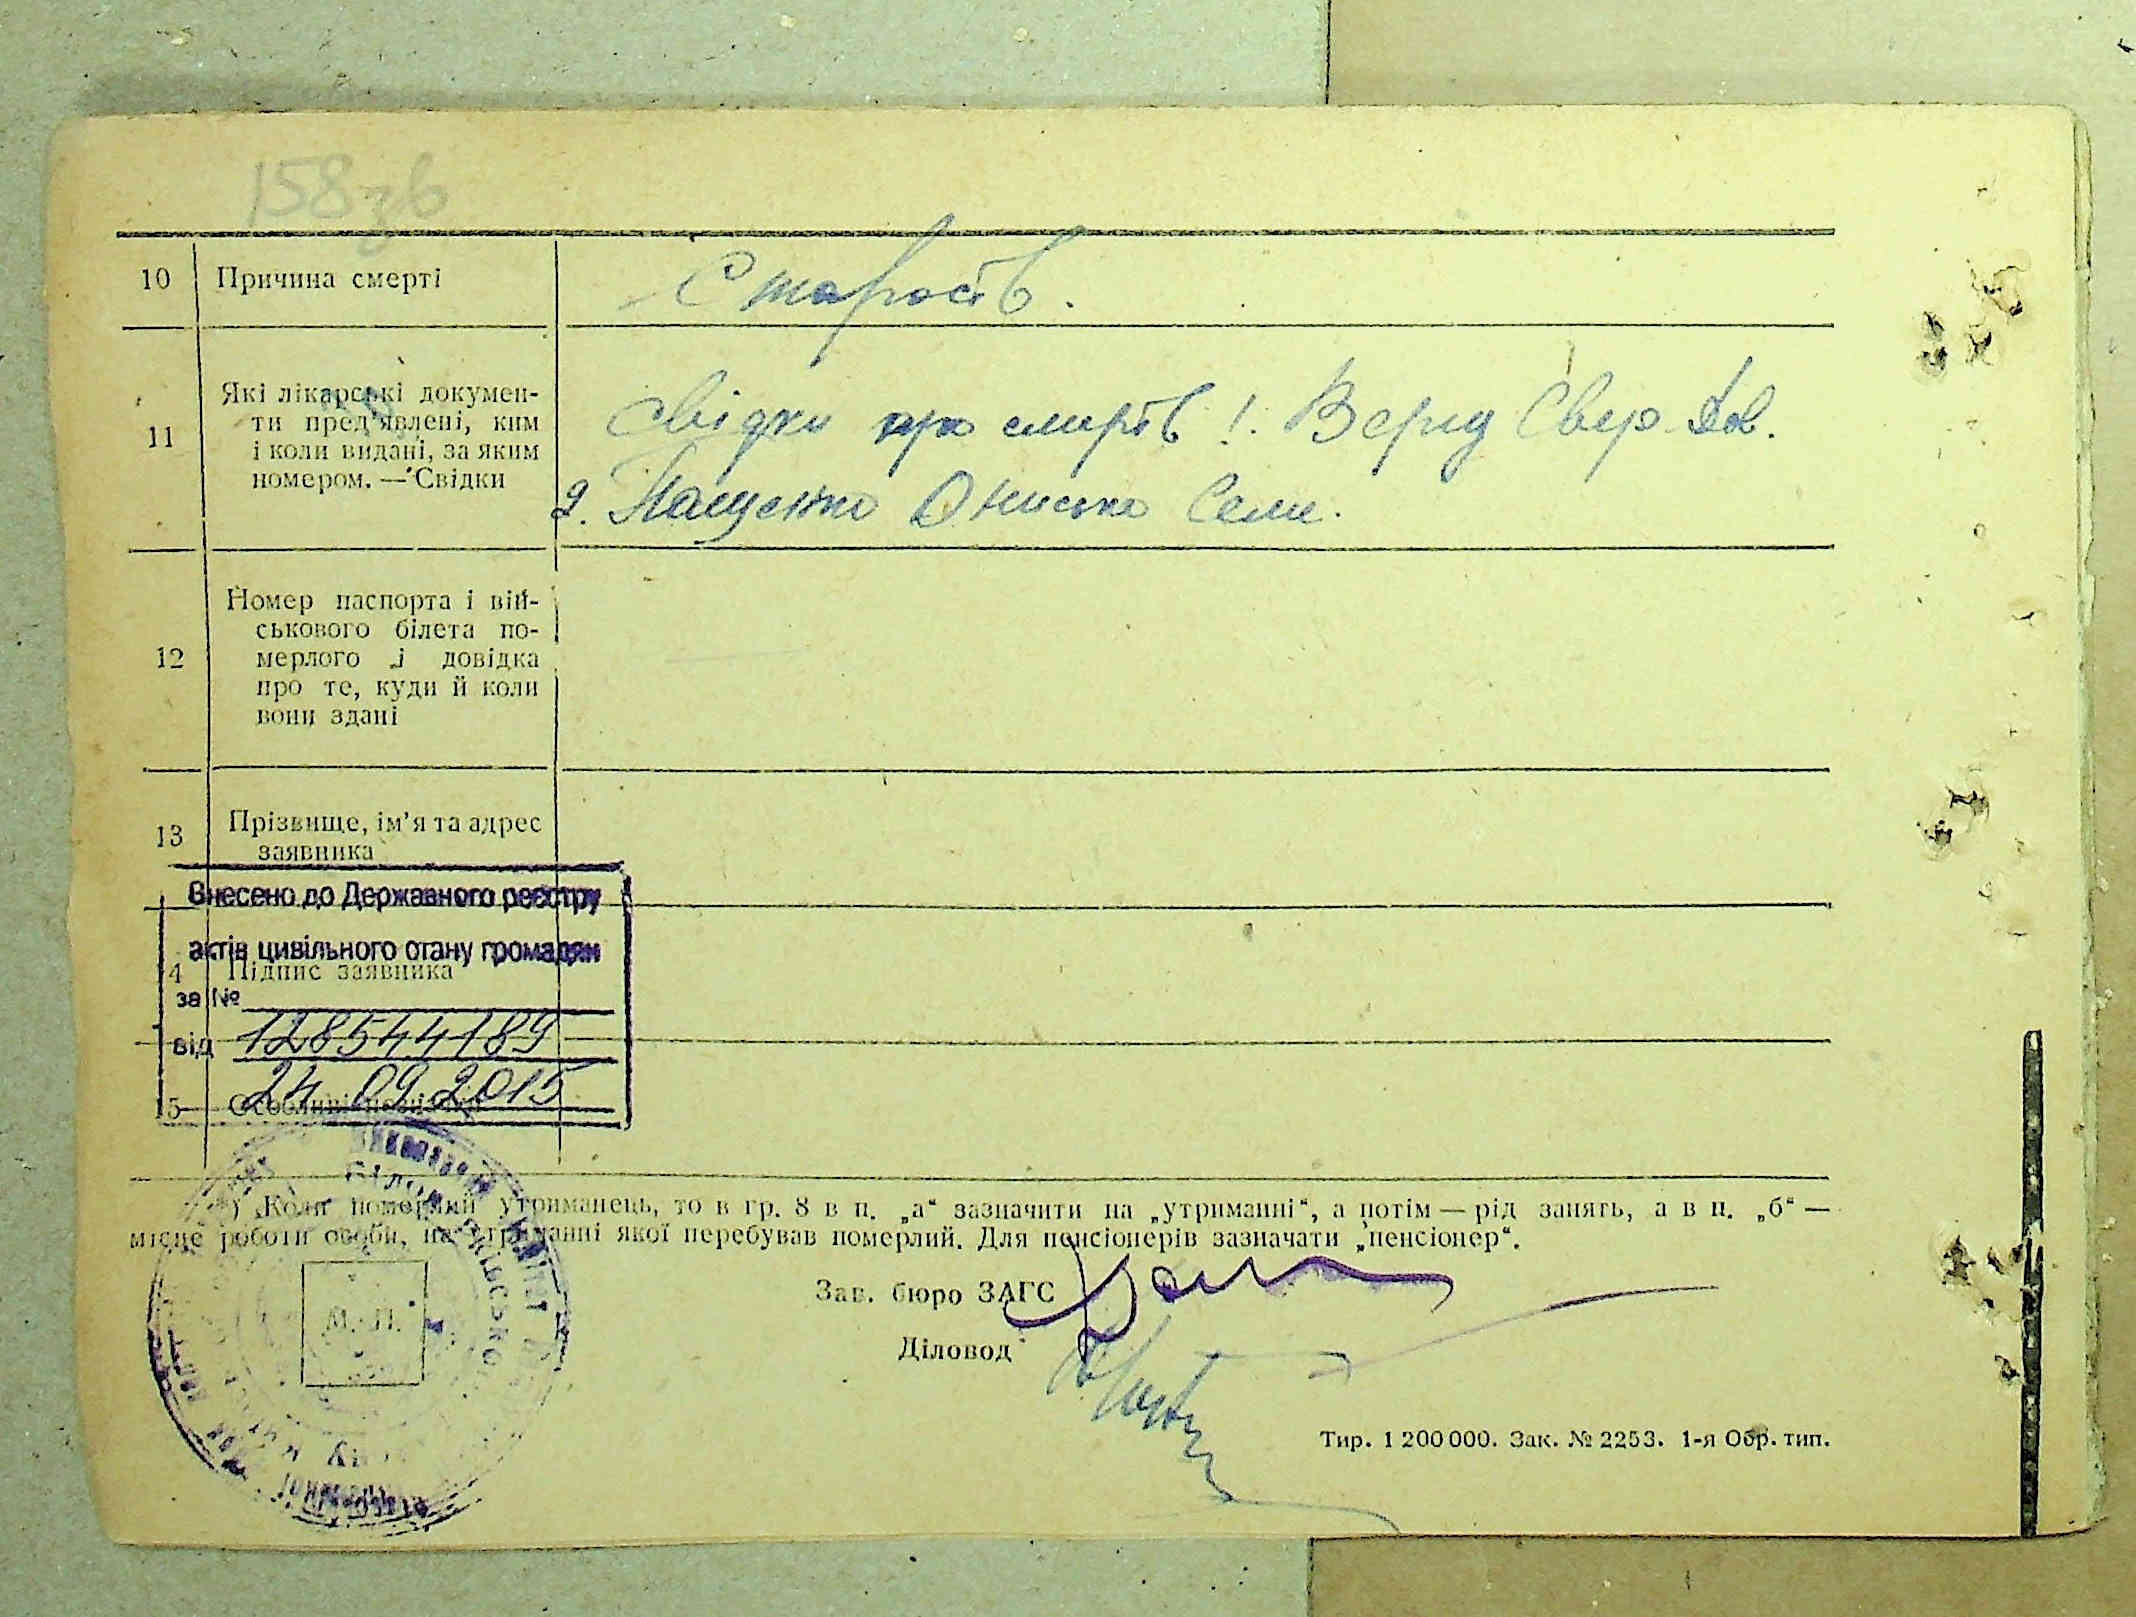 158 зв
10 Причина смерті Старість.
11 Які лікарські докумен-
ти пред'явлені, ким
і коли видані, за яким
номером. — Свідки
Свідки про смерть 1.
2. Пащенко Ониська Сем.
12 Номер паспорта і вій-
ськового білета по-
мерлого і довідка
про те, куди й коли
вони здані
13 Прізвище, ім'я та адрес
заявника
Внесено до Державного реєстру
актів цивільного стану громадян
14 Підпис заявника
за №
від 128544189
24.09.2015
15 Особливі
) Коли померлий утриманець, то в гр. 8 в п. „а“ зазначити на „утриманні“, а потім — рід занять, а в п. „б“ —
місце роботи особи, на утриманні якої перебував померлий. Для пенсіонерів зазначати „пенсіонер“.
Зав. бюро ЗАГС
М. П.
Діловод
Тир. 1 200 000. Зак. № 2253. 1-я Обр. тип.